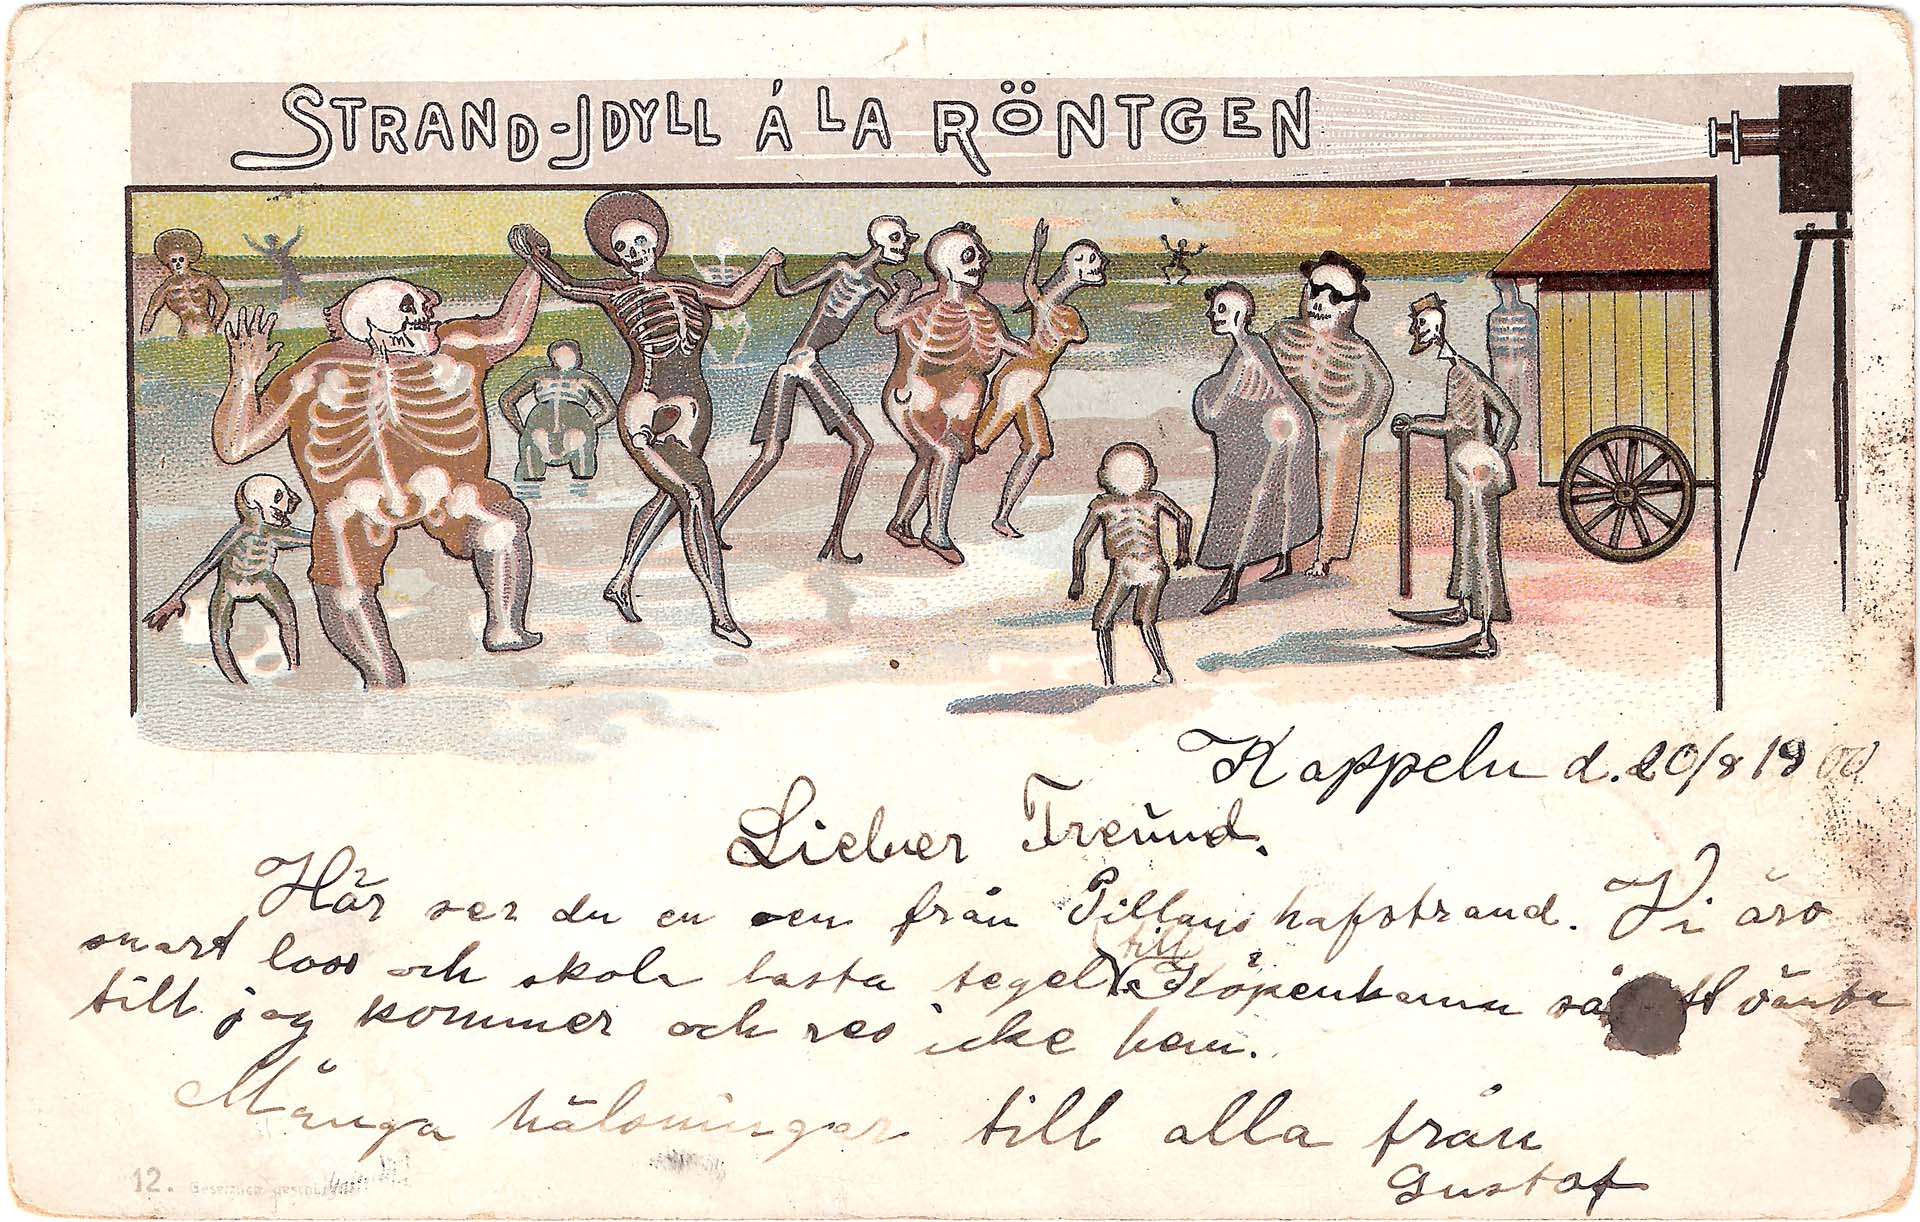 STRAND-IDYLL Á LA RÖNTGEN
Kappeln d. 20/8 1900
Lieber Freund.
Här ser du en från Pillaus hafstrand. Vi äro
snart loss och skola lasta tegel till Köpenhamn så vänta
till jag kommer och res icke hem.
Många hälsningar till alla från
Gustaf
12. Gesetzlich geschützt